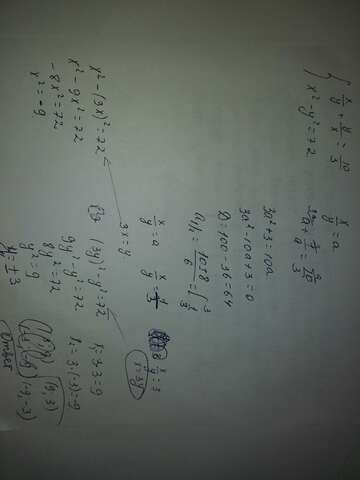 { x/y + y/x = 10/3
x² - y² = 72
x/y = a
a + 1/a = 10/3
3a² + 3 = 10a
3a² - 10a + 3 = 0
D = 100 - 36 = 64
a₁/₂ = 10±8/6 = [ 3 1/3
x/y = a
x/y = 1/3
x/y = 3
x = 3y
3x = y
x² - (3x)² = 72
x² - 9x² = 72
-8x² = 72
x² = -9
(3y)² - y² = 72
9y² - y² = 72
8y² = 72
y² = 9
y = ±3
x₁ = 3·3 = 9
x₂ = 3·(-3) = -9
Ответ
(9; 3)
(-9; -3)